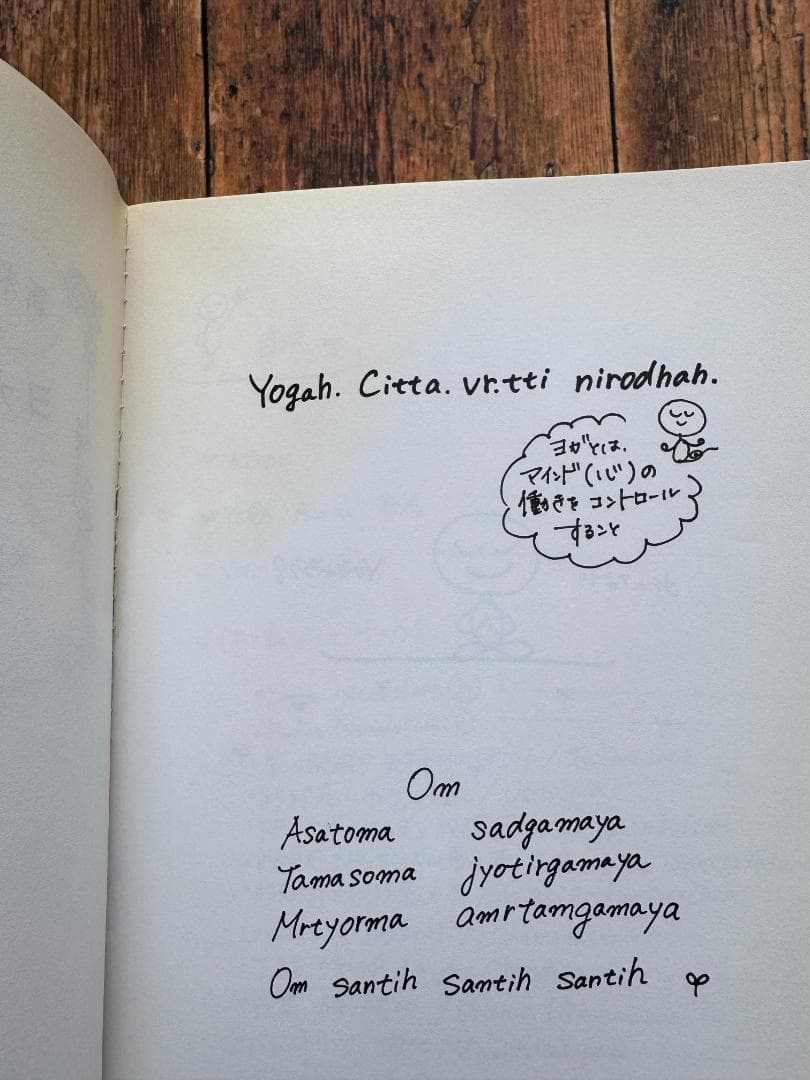 Yogah. Citta. vr.tti nirodhah.
ヨガとは、
マインド(心)の
働きをコントロール
すること
Om
Asatoma sadgamaya
Tamasoma jyotirgamaya
Mrtyorma amrtamgamaya
Om santih santih santih